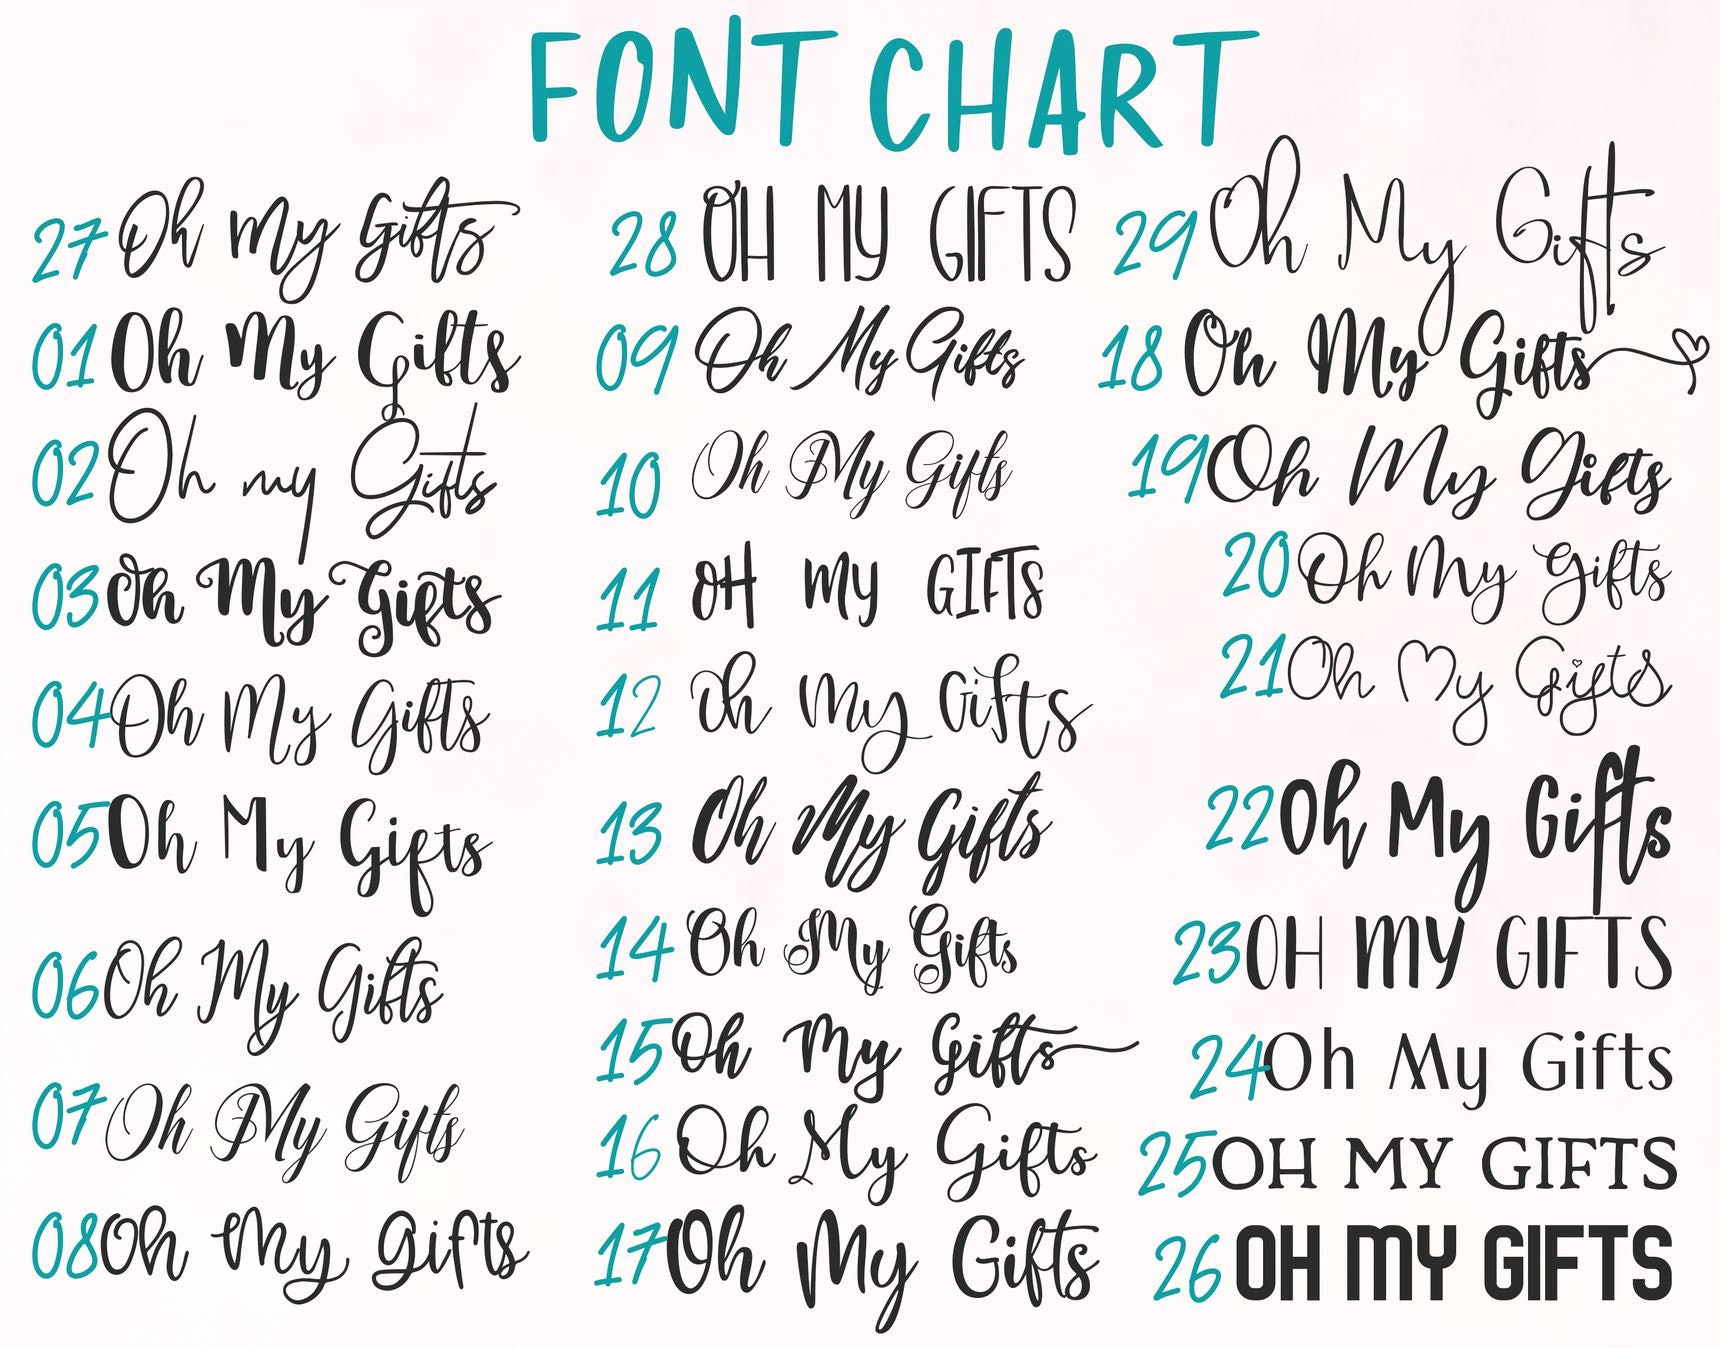 FONT CHART
27 Oh My Gifts
01 Oh My Gifts
02 Oh my Gifts
03 Oh My Gifts
04 Oh My Gifts
05 Oh My Gifts
06 Oh My Gifts
07 Oh My Gifts
08 Oh My Gifts
28 OH MY GIFTS
09 Oh My Gifts
10 Oh My Gifts
11 OH MY GIFTS
12 Oh My Gifts
13 Oh My Gifts
14 Oh My Gifts
15 Oh My Gifts
16 Oh My Gifts
17 Oh My Gifts
29 Oh My Gifts
18 Oh My Gifts
19 Oh My Gifts
20 Oh My Gifts
21 Oh My Gifts
22 Oh My Gifts
23 OH MY GIFTS
24 Oh My Gifts
25 OH MY GIFTS
26 OH MY GIFTS